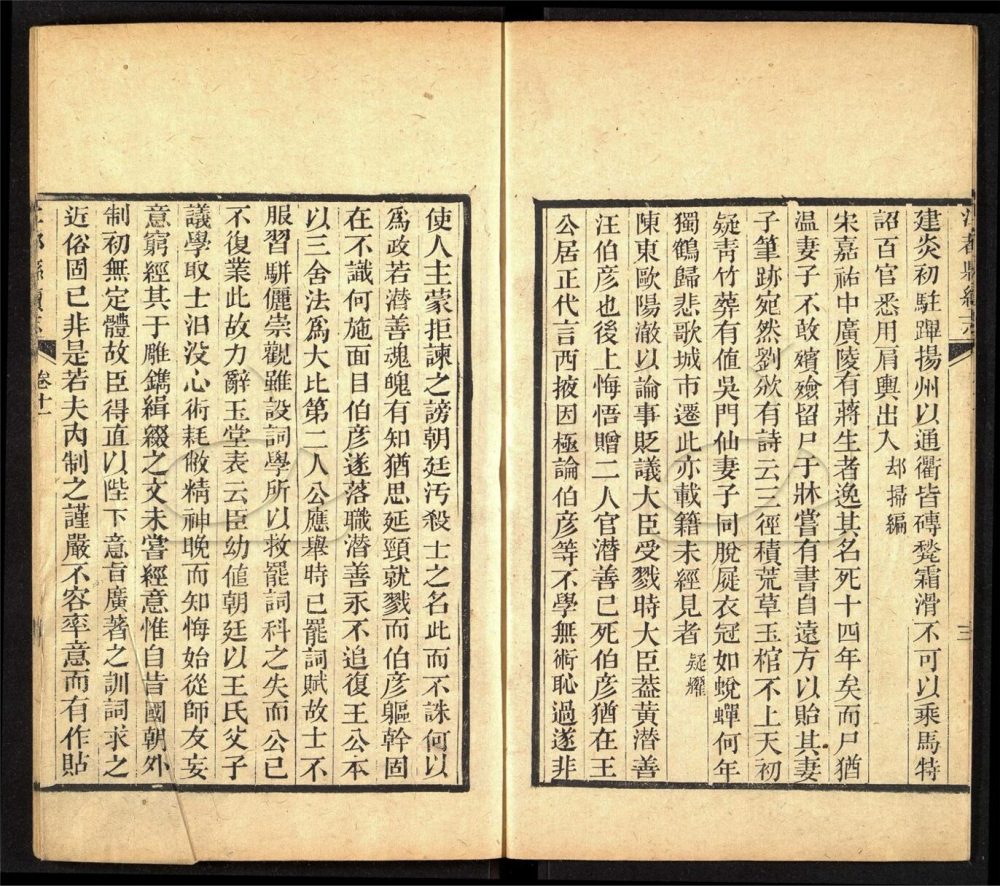 江都縣續志
三
建炎初駐蹕揚州以通衢皆磚甃霜滑不可以乘馬特
詔百官悉用肩輿出入 却掃編
宋嘉祐中廣陵有蔣生者逸其名死十四年矣而尸猶
温妻子不敢嬪殮留尸于牀嘗有書自遠方以貽其妻
子筆跡宛然劉攽有詩云三徑積荒草玉棺不上天初
疑青竹葬有値吳門仙妻子同脫屣衣冠如蛻蟬何年
獨鶴歸悲歌城市遷此亦載籍未經見者 疑耀
陳東歐陽澈以論事貶議大臣受戮時大臣葢黃潜善
汪伯彥也後上悔悟贈二人官潜善已死伯彥猶在王
公居正代言西掖因極論伯彥等不學無術恥過遂非
使人主蒙拒諫之謗朝廷汚殺士之名此而不誅何以
爲政若潜善魂魄有知猶思延頸就戮而伯彥軀幹固
在不識何施面目伯彥遂落職潜善永不追復王公本
以三舍法爲大比第二人公應舉時已罷詞賦故士不
服習駢儷崇觀雖設詞學所以救罷詞科之失而公已
不復業此故力辭玉堂表云臣幼値朝廷以王氏父子
議學取士汩没心術耗敝精神晚而知悔始從師友妄
意窮經其于雕鐫緝綴之文未嘗經意惟自昔國朝外
制初無定體故臣得直以陛下意旨廣著之訓詞求之
近俗固已非是若夫内制之謹嚴不容率意而有作貼
江都縣續志
卷十一